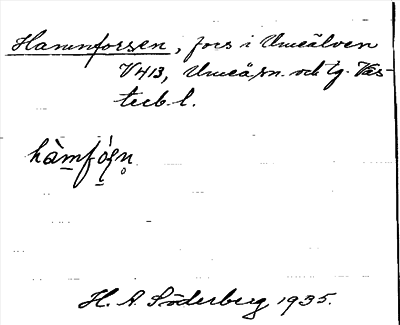 Hamnforsen, fors i Umeälven
V 413, Umeå sn. och tg. Väs-
terb. l.
hàm̲fó̲ṣn̥
H. A. Söderberg 1935.